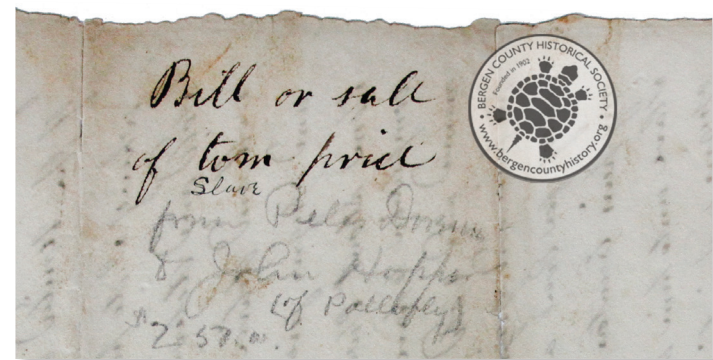 Bill or sale
of tom price
Slave
from Peter
& John Hopper
of Pollifly
$250.00
BERGEN COUNTY HISTORICAL SOCIETY
Founded in 1902
www.bergencountyhistory.org